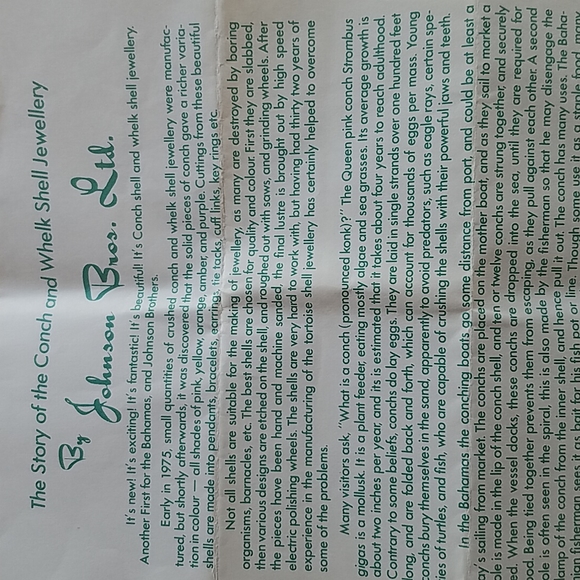 The Story of the Conch and Whelk Shell Jewellery
By Johnson Bros. Ltd.
It's new! It's exciting! It's fantastic! It's beautiful! It's Conch shell and whelk shell jewellery.
Another First for the Bahamas, and Johnson Brothers.
Early in 1975, small quantities of crushed conch and whelk jewellery were manufac-
tured, but shortly afterwards, it was discovered that the solid pieces of conch gave a richer varia-
tion in colour — all shades of pink, yellow, orange, amber, and purple. Cuttings from these beautiful
shells are made into pendants, bracelets, earrings, tie tacks, cuff links, key rings etc.
Not all shells are suitable for the making of jewellery, as many are destroyed by boring
organisms, barnacles, etc. The best shells are chosen for quality and colour. First they are slabbed,
then various designs are etched on the shell, and roughed out with saws, and grinding wheels. After
the pieces have been hand and machine sanded, the final lustre is brought out by high speed
electric polishing wheels. The shells are very hard to work with, but having had thirty two years of
experience in the manufacturing of the tortoise shell jewellery has certainly helped to overcome
some of the problems.
Many visitors ask, "What is a conch (pronounced konk)?" The Queen pink conch Strombus
gigas is a mollusk. It is a plant feeder, eating mostly algae and sea grasses. Its average growth is
about two inches per year, and its is estimated that it takes about four years to reach adulthood.
Contrary to some beliefs, conchs do lay eggs. They are laid in single strands over one hundred feet
long, and are folded back and forth, which can account for thousands of eggs per mass. Young
conchs bury themselves in the sand, apparently to avoid predators, such as eagle rays, certain spe-
ies of turtles, and fish, who are capable of crushing the shells with their powerful jaws and teeth.
In the Bahamas the conching boats go some distance from port, and could be at least a
y's sailing from market. The conchs are placed on the mother boat, and as they sail to market a
le is made in the lip of the conch shell, and ten or twelve conchs are strung together, and securely
ed. When the vessel docks, these conchs are dropped into the sea, until they are required for
od. Being tied together prevents them from escaping, as they pull against each other. A second
le is often seen in the spiral, this is also made by the fisherman so that he may disengage the
lamp of the conch from the inner shell, and hence pull it out. The conch has many uses. The Baha-
ian fisherman uses it to bait his fish pot or line. Though some use it as a staple food, many